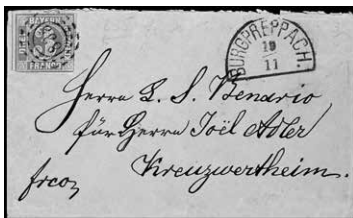 BAYERN
FRANCO
BURGPREPPACH.
19
11
Herrn L. S. Benario
für Herrn Joël Adler
Kreuzwertheim.
frco